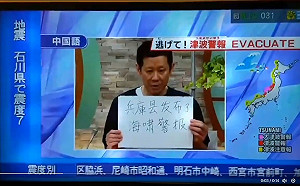 地震 石川県で震度7
中国語
逃げて!津波警報
EVACUATE
兵庫县发布了
海啸警报
TSUNAMI
大津波警報
津波警報
津波注意報
震度別
区脇浜、尼崎市昭和通、明石市中崎、西宮市宮前町、